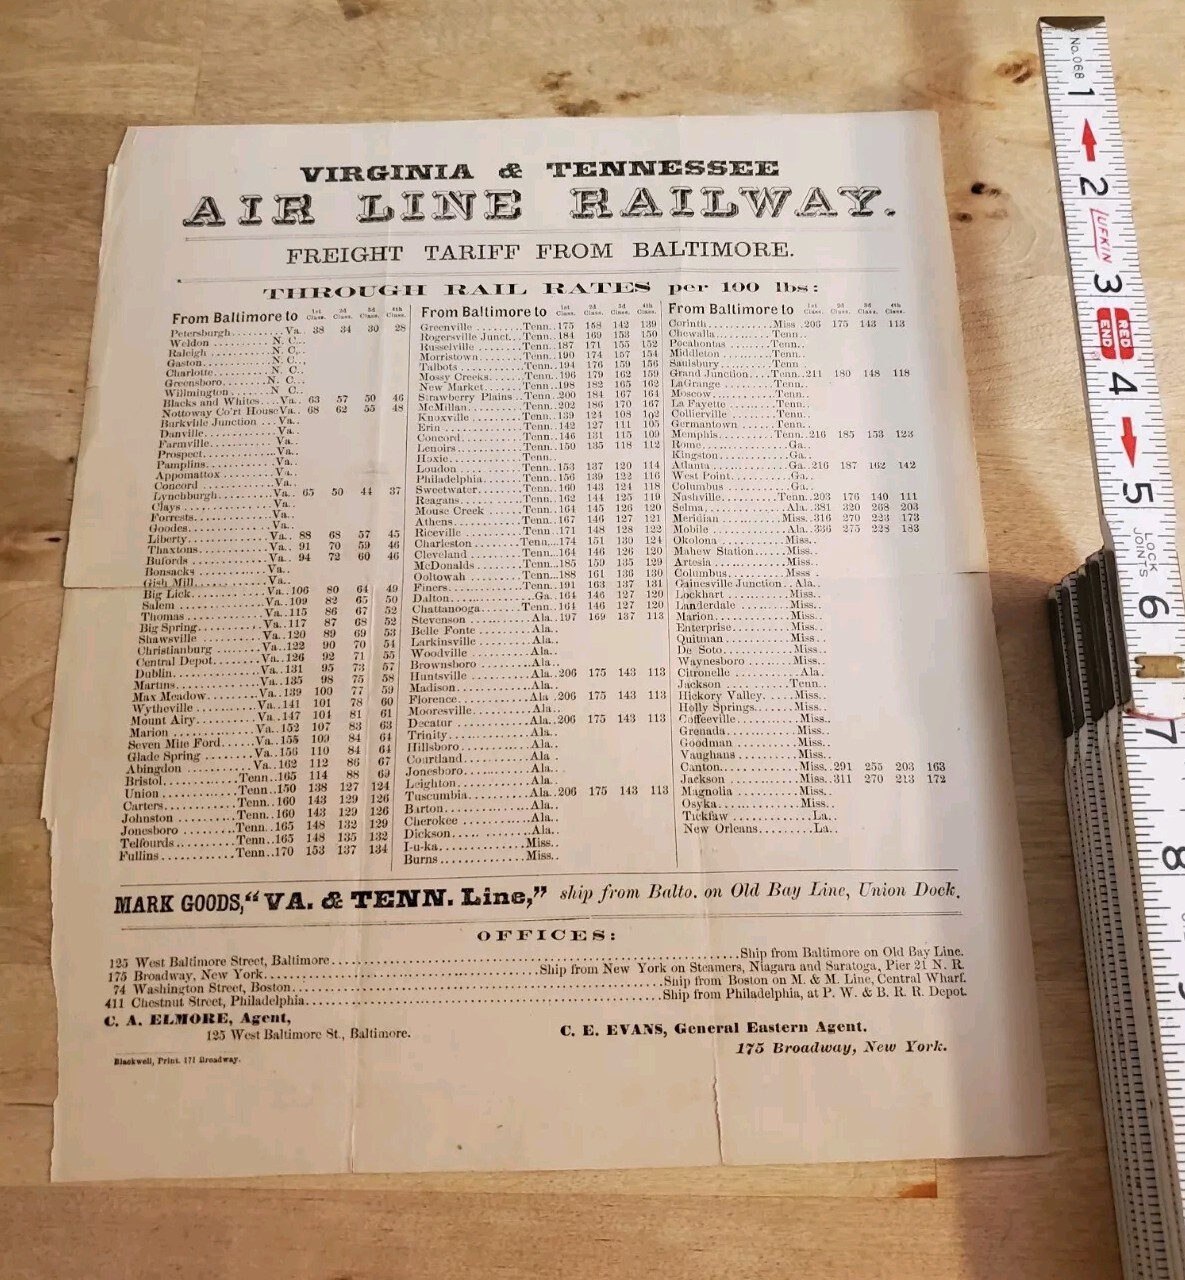 VIRGINIA & TENNESSEE
AIR LINE RAILWAY.
FREIGHT TARIFF FROM BALTIMORE.
THROUGH RAIL RATES per 100 lbs:
From Baltimore to 1st Class. 2d Class. 3d Class. 4th Class.
Petersburgh..........Va. 38 34 30 28
Weldon..........N. C..
Raleigh..........N. C..
Gaston..........N. C..
Charlotte..........N. C..
Greensboro..........N. C...
Wilmington..........N C..
Blacks and Whites....Va.. 63 57 50 46
Nottoway Co'rt House Va.. 68 62 55 48
Burkville Junction ....Va..
Danville..........Va..
Farmville..........Va..
Prospect..........Va..
Pamplins..........Va..
Appomattox..........Va..
Concord..........Va..
Lynchburgh..........Va.. 65 50 44 37
Clays..........Va.
Forrests..........Va..
Goodes..........Va..
Liberty..........Va.. 88 68 57 45
Thaxtons..........Va.. 91 70 59 46
Bufords..........Va.. 94 72 60 46
Bonsacks..........Va..
Gish Mill..........Va..
Big Lick..........Va..106 80 64 49
Salem..........Va..109 82 65 50
Thomas..........Va..115 86 67 52
Big Spring..........Va..117 87 68 52
Shawsville..........Va..120 89 69 53
Christianburg..........Va..122 90 70 54
Central Depot..........Va..126 92 71 55
Dublin..........Va..131 95 73 57
Martins..........Va..135 98 75 58
Max Meadow..........Va..139 100 77 59
Wytheville..........Va..141 101 78 60
Mount Airy..........Va..147 104 81 61
Marion..........Va..152 107 83 63
Seven Mile Ford......Va..155 109 84 64
Glade Spring..........Va..156 110 84 64
Abingdon..........Va..162 112 86 67
Bristol..........Tenn..165 114 88 69
Union..........Tenn..150 138 127 124
Carters..........Tenn..160 143 129 126
Johnston..........Tenn..160 143 129 126
Jonesboro..........Tenn..165 148 132 129
Telfourds..........Tenn..165 148 135 132
Fullins..........Tenn..170 153 137 134
From Baltimore to 1st Class. 2d Class. 3d Class. 4th Class.
Greenville..........Tenn..175 158 142 139
Rogersville Junct...Tenn..184 169 153 150
Russelville..........Tenn..187 171 155 152
Morristown..........Tenn..190 174 157 154
Talbots..........Tenn..194 176 159 156
Mossy Creeks..........Tenn..196 179 162 159
New Market..........Tenn..198 182 165 162
Strawberry Plains...Tenn..200 184 167 164
McMillan..........Tenn..202 186 170 167
Knoxville..........Tenn..139 124 108 102
Erin..........Tenn..142 127 111 105
Concord..........Tenn..146 131 115 109
Lenoirs..........Tenn..150 135 118 112
Hoxie..........Tenn..
Loudon..........Tenn..153 137 120 114
Philadelphia..........Tenn..156 139 122 116
Sweetwater..........Tenn..160 143 124 118
Reagans..........Tenn..162 144 125 119
Mouse Creek..........Tenn..164 145 126 120
Athens..........Tenn..167 146 127 121
Riceville..........Tenn..171 148 128 122
Charleston..........Tenn....174 151 130 124
Cleveland..........Tenn...164 146 126 120
McDonalds..........Tenn...185 159 135 129
Ooltowah..........Tenn...188 161 136 130
Finers..........Tenn..191 163 137 131
Dalton..........Ga..164 146 127 120
Chattanooga..........Tenn..164 146 127 120
Stevenson..........Ala..197 169 137 113
Belle Fonte..........Ala..
Larkinsville..........Ala..
Woodville..........Ala..
Brownsboro..........Ala..
Huntsville..........Ala..206 175 143 113
Madison..........Ala..
Florence..........Ala..206 175 143 113
Mooresville..........Ala..
Decatur..........Ala..206 175 143 113
Trinity..........Ala..
Hillsboro..........Ala..
Courtland..........Ala.
Jonesboro..........Ala..
Leighton..........Ala..
Tuscumbia..........Ala..206 175 143 113
Barton..........Ala..
Cherokee..........Ala..
Dickson..........Ala..
I-u-ka..........Miss..
Burns..........Miss..
From Baltimore to 1st Class. 2d Class. 3d Class. 4th Class.
Corinth..........Miss .206 175 143 113
Chewalla..........Tenn..
Pocahontus..........Tenn..
Middleton..........Tenn..
Saulsbury..........Tenn
Grand Junction....Tenn..211 180 148 118
LaGrange..........Tenn..
Moscow..........Tenn..
La Fayette..........Tenn..
Collierville..........Tenn..
Germantown..........Tenn..
Memphis..........Tenn..216 185 153 123
Rome..........Ga..
Kingston..........Ga..
Atlanta..........Ga..216 187 162 142
West Point..........Ga..
Columbus..........Ga..
Nashville..........Tenn..203 176 140 111
Selma..........Ala..381 320 268 203
Meridian..........Miss..316 270 223 173
Mobile..........Ala..336 275 228 183
Okolona..........Miss..
Mahew Station.......Miss..
Artesia..........Miss..
Columbus..........Msss .
Gainesville Junction...Ala..
Lockhart..........Miss..
Landerdale..........Miss..
Marion..........Miss..
Enterprise..........Miss..
Quitman..........Miss..
De Soto..........Miss..
Waynesboro..........Miss..
Citronelle..........Ala.
Jackson..........Tenn..
Hickory Valley.......Miss..
Holly Springs.......Miss..
Coffeeville..........Miss..
Grenada..........Miss..
Goodman..........Miss..
Vaughans..........Miss..
Canton..........Miss..291 255 203 163
Jackson..........Miss..311 270 213 172
Magnolia..........Miss..
Osyka..........Miss..
Tickfaw..........La..
New Orleans..........La..
MARK GOODS, "VA. & TENN. Line," ship from Balto. on Old Bay Line, Union Dock.
OFFICES:
125 West Baltimore Street, Baltimore..........Ship from Baltimore on Old Bay Line.
175 Broadway, New York..........Ship from New York on Steamers, Niagara and Saratoga, Pier 21 N. R.
74 Washington Street, Boston..........Ship from Boston on M. & M. Line, Central Wharf.
411 Chestnut Street, Philadelphia..........Ship from Philadelphia, at P. W. & B. R. R. Depot.
C. A. ELMORE, Agent,
125 West Baltimore St., Baltimore.
C. E. EVANS, General Eastern Agent.
175 Broadway, New York.
Blackwell, Print. 171 Broadway.
No. 066
1
2
LUFKIN
3
RED END
4
5
LOCK JOINTS
6
7
8